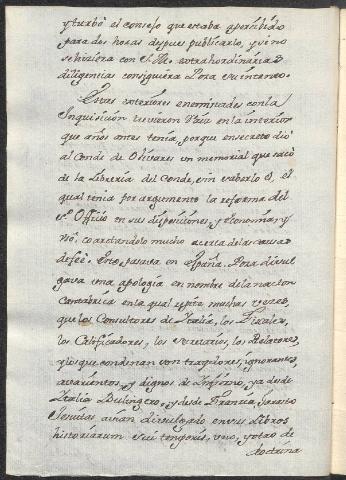 y turbó el consejo que estaba apercibido
para dos horas despues publicarlo, y si no
se hiziera con S. M. extrahordinarias
diligencias consiguiera Poza su intento.
Estas exteriores enemistades con la
Inquisición tuvieron Raiz en la interior
que años antes tenía, porque en secreto dió
al Conde de Olivares un memorial que sacó
de la Libreria del Conde, sin saberlo él, el
qual tenia por argumento la reforma del
Sto. Officio en sus disposiciones, y economia, y
uso, coartandolo mucho acerca de las causas
de feé. Esto pasava en España. Poza divul
gava una apología en nombre de la nacion
Cantabrica en la qual repite muchas vezes,
que los Consultores de Italia, los Fiscales,
los Calificadores, los Secretarios, los Relatores,
y los que condenan son tragadores, ignorantes,
avarientos, y dignos de Infierno, ya desde
Italia Bulingero, y desde Francia,
Jesuitas avian divulgado en sus Libros
historiarum sui temporis, uno, y otro de
doctrina